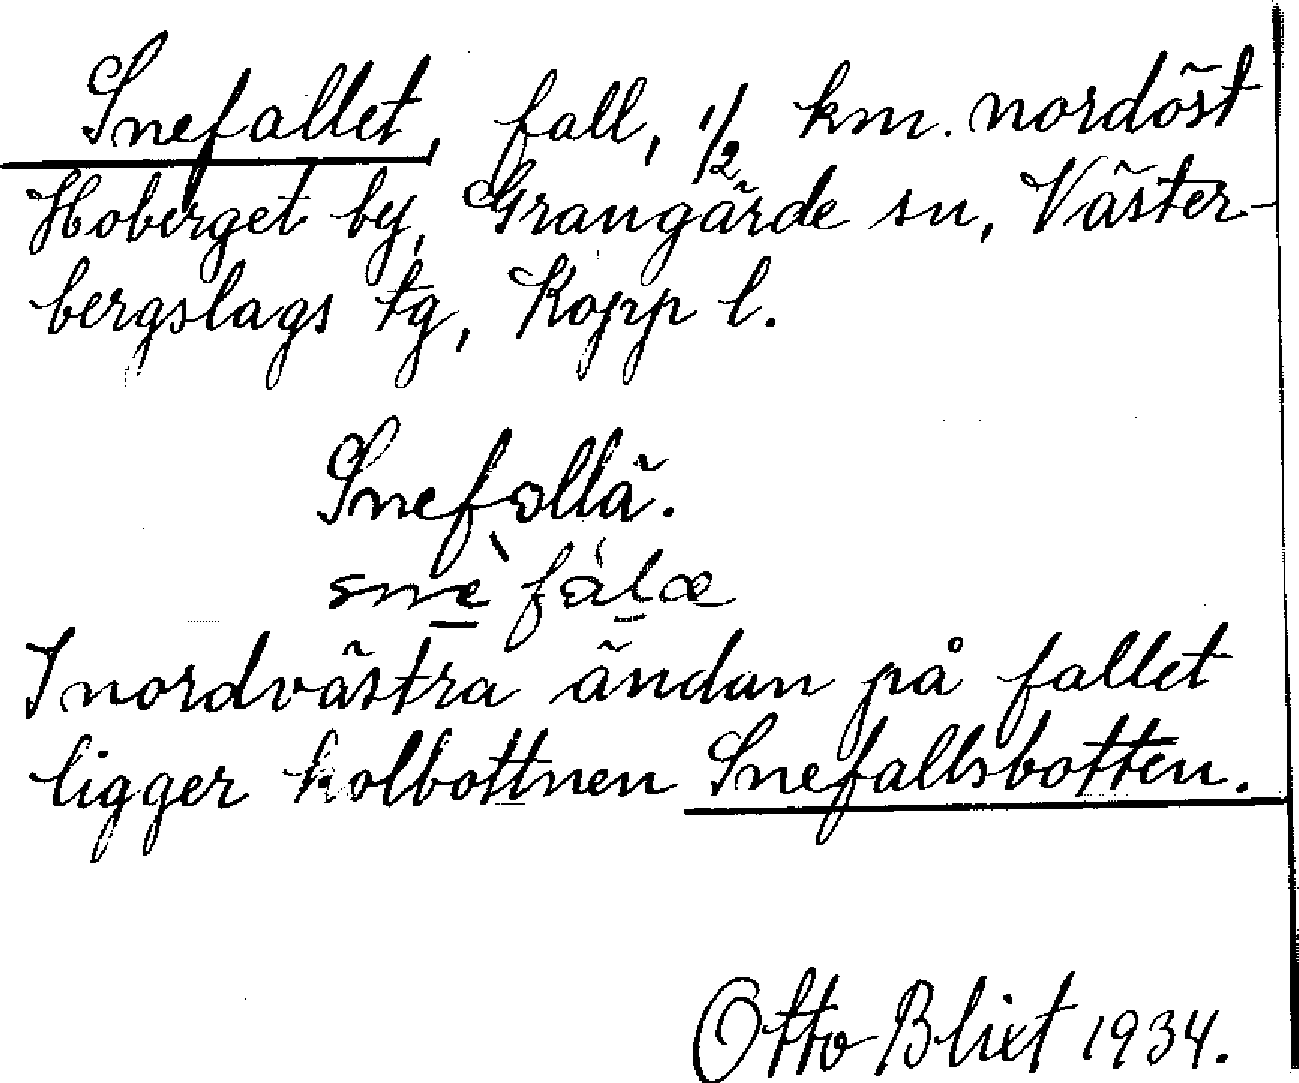 Snefallet, fall, 1/2 km. nordöst
Hoberget by, Grangärde sn, Väster-
bergslags tg, Kopp l.
Snefallä.
snè fàlæ
I nordvästra ändan på fallet
ligger kolbottnen Snefallsbotten.
Otto Blixt 1934.